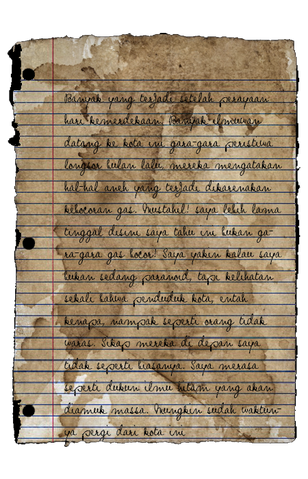 Banyak yang terjadi setelah perayaan
hari kemerdekaan. Banyak ilmuwan
datang ke kota ini gara-gara peristiwa
longsor bulan lalu, mereka mengatakan
hal-hal aneh yang terjadi dikarenakan
kebocoran gas. Mustahil! saya lebih lama
tinggal disini, saya tahu ini bukan ga-
ra-gara gas bocor! Saya yakin kalau saya
bukan sedang paranoid, tapi kelihatan
sekali bahwa penduduk kota, entah
kenapa, nampak seperti orang tidak
waras. Sikap mereka di depan saya
tidak seperti biasanya. Saya merasa
seperti dukun ilmu hitam yang akan
diamuk massa. Mungkin sudah waktun-
ya pergi dari kota ini